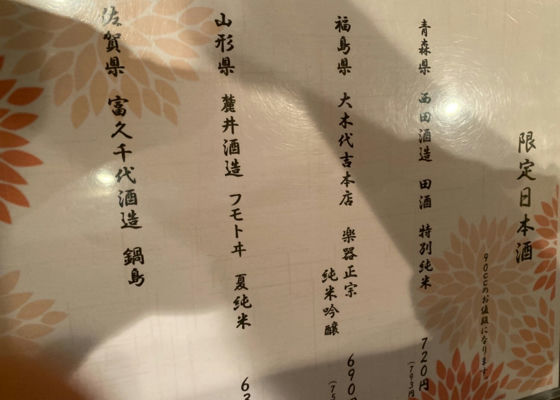 限定日本酒
90ccのお値段になります。
青森県 西田酒造 田酒 特別純米 720円
(793円
福島県 大木代吉本店 楽器正宗
純米吟醸 690
(75
山形県 麓井酒造 フモトヰ 夏純米 63
佐賀県 富久千代酒造 鍋島